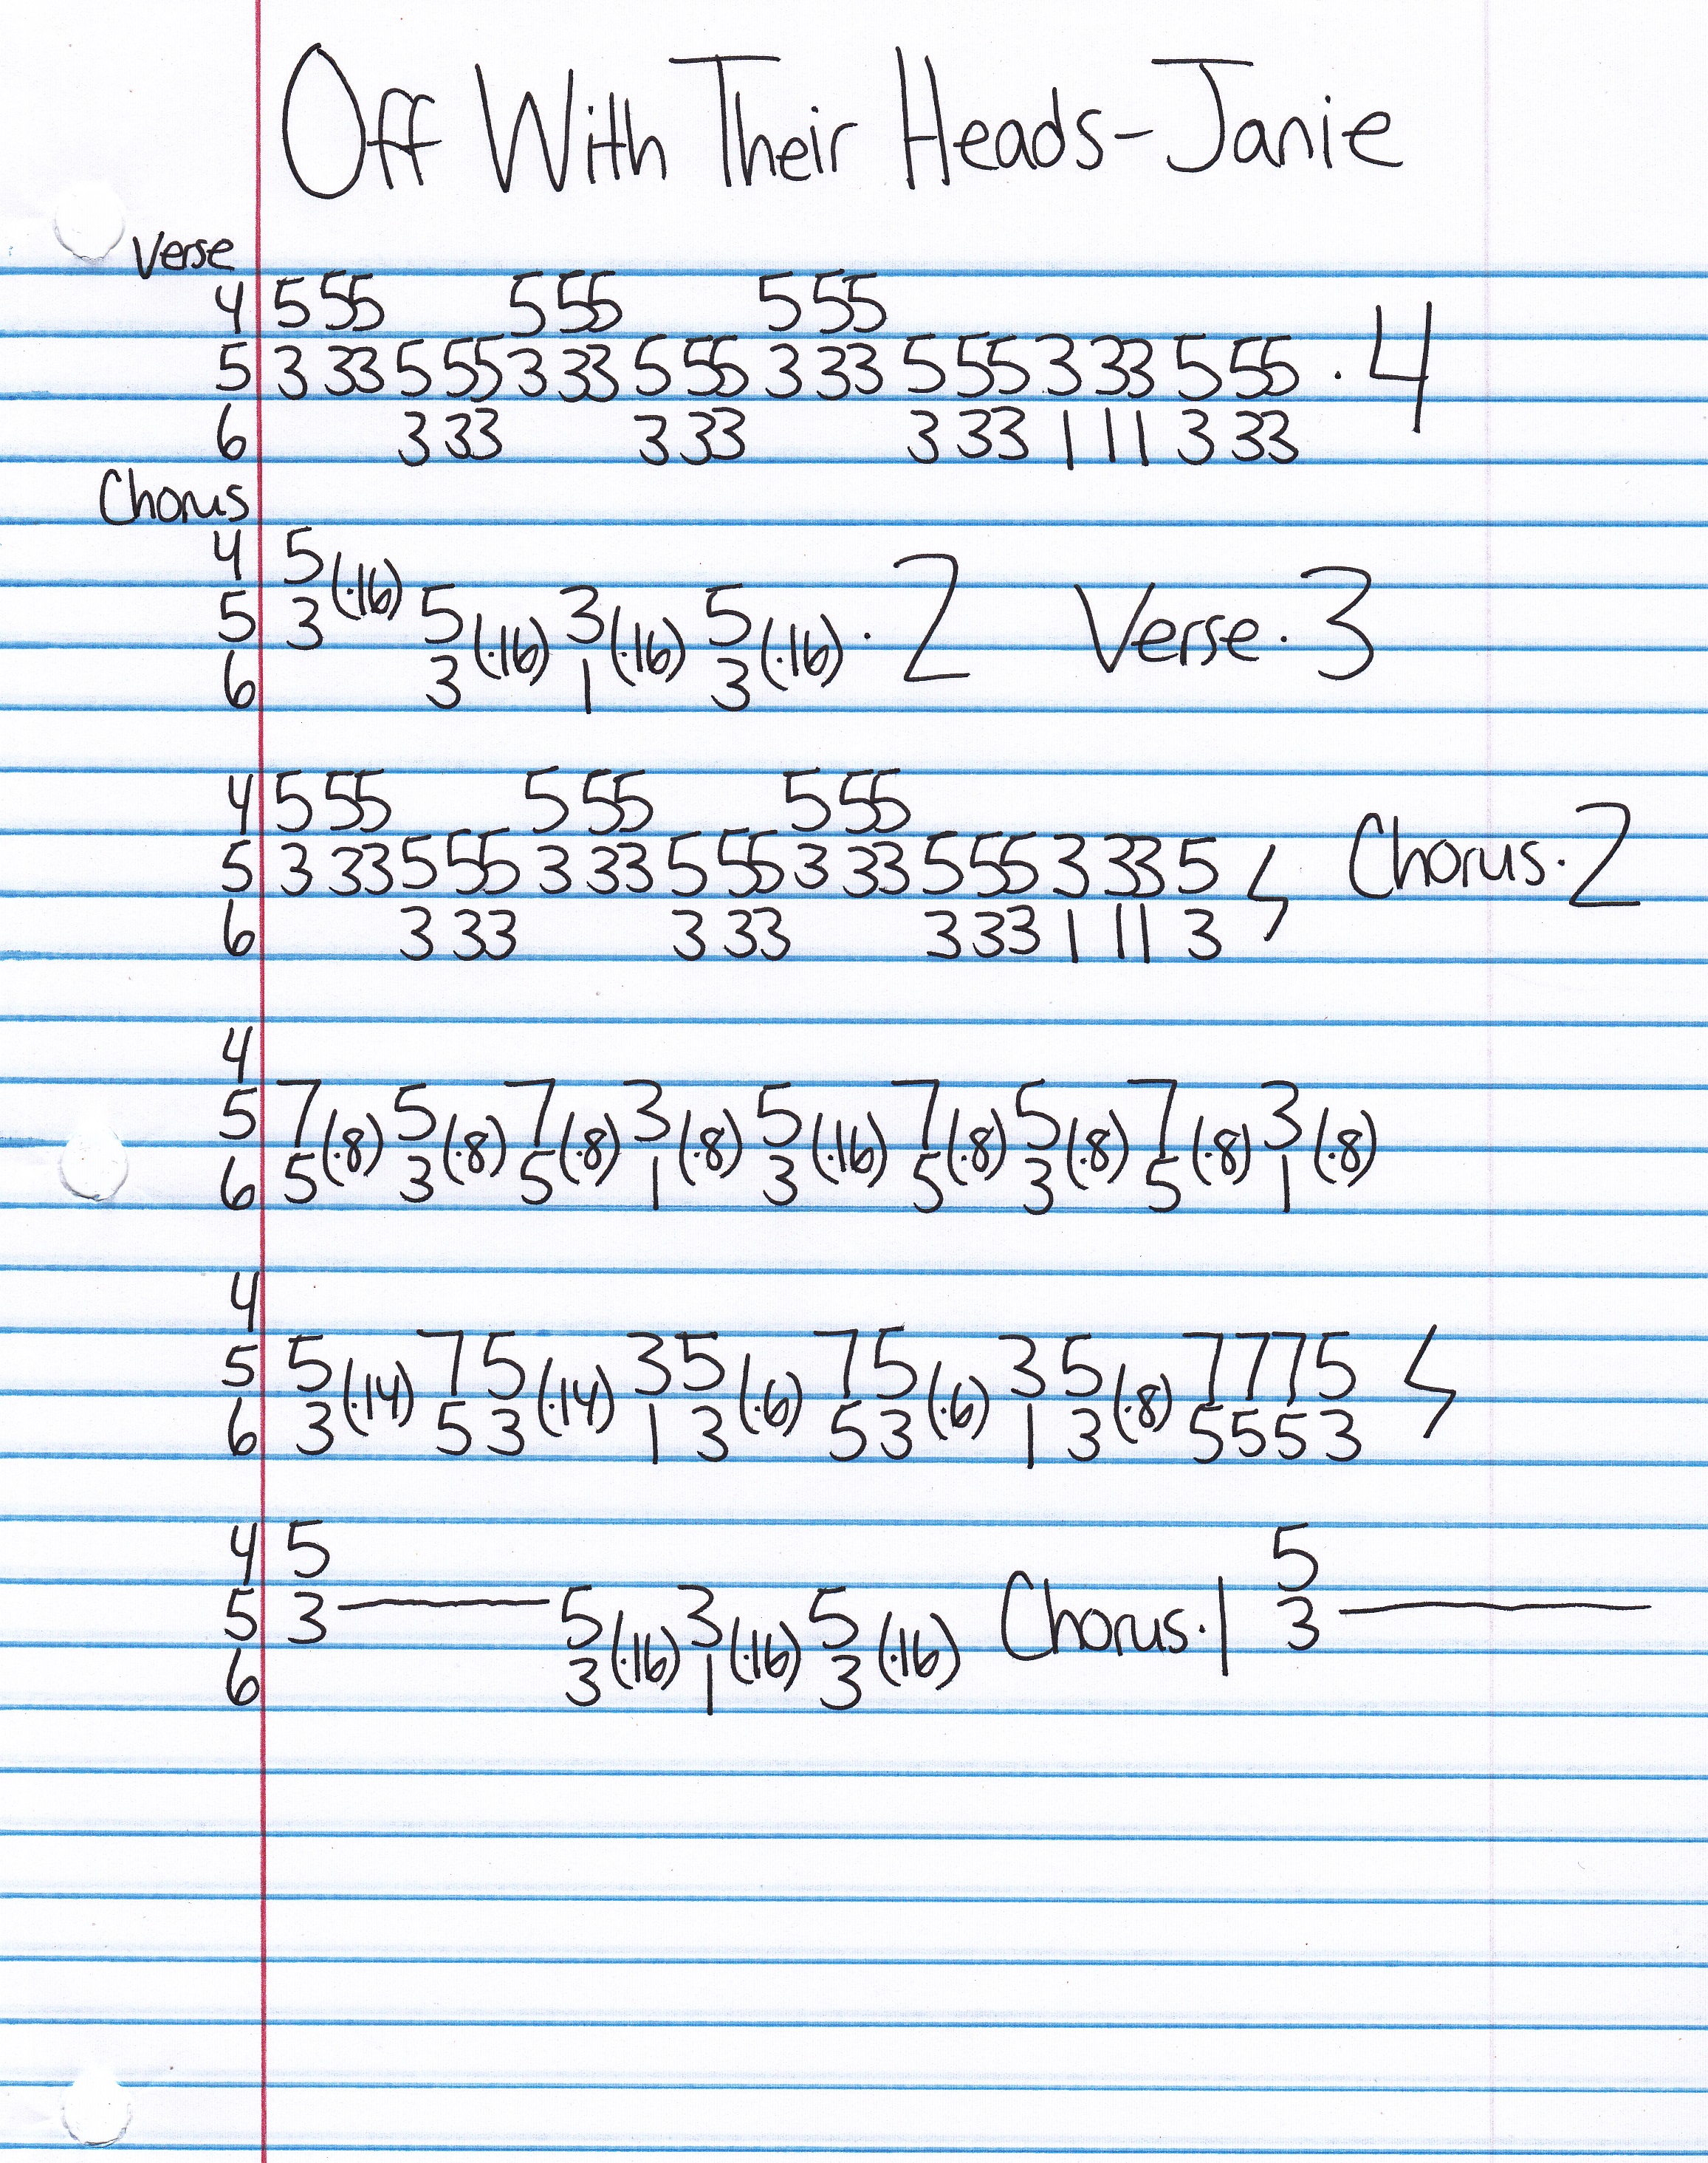 Off With Their Heads-Janie
Verse
4 5 55 5 55 5 55
5 3 33 5 55 3 33 5 55 3 33 5 55 3 33 5 55 · 4
6 3 33 3 33 3 33 1 11 3 33
Chorus
4 5
5 3 (·16) 5 (·16) 3 (·16) 5 (·16) · 2 Verse · 3
6 3 1 3
4 5 55 5 55 5 55
5 3 33 5 55 3 33 5 55 3 33 5 55 3 33 5 Chorus · 2
6 3 33 3 33 3 33 1 11 3
4
5 7 (·8) 5 (·8) 7 (·8) 3 (·8) 5 (·16) 7 (·8) 5 (·8) 7 (·8) 3 (·8)
6 5 3 5 1 3 5 3 5 1
4
5 5 (·14) 7 5 (·14) 3 5 (·6) 7 5 (·6) 3 5 (·8) 7 7 7 5
6 3 5 3 1 3 5 3 1 3 5 5 5 3
4 5 5
5 3 5 (·16) 3 (·16) 5 (·16) Chorus · 1 3
6 3 1 3